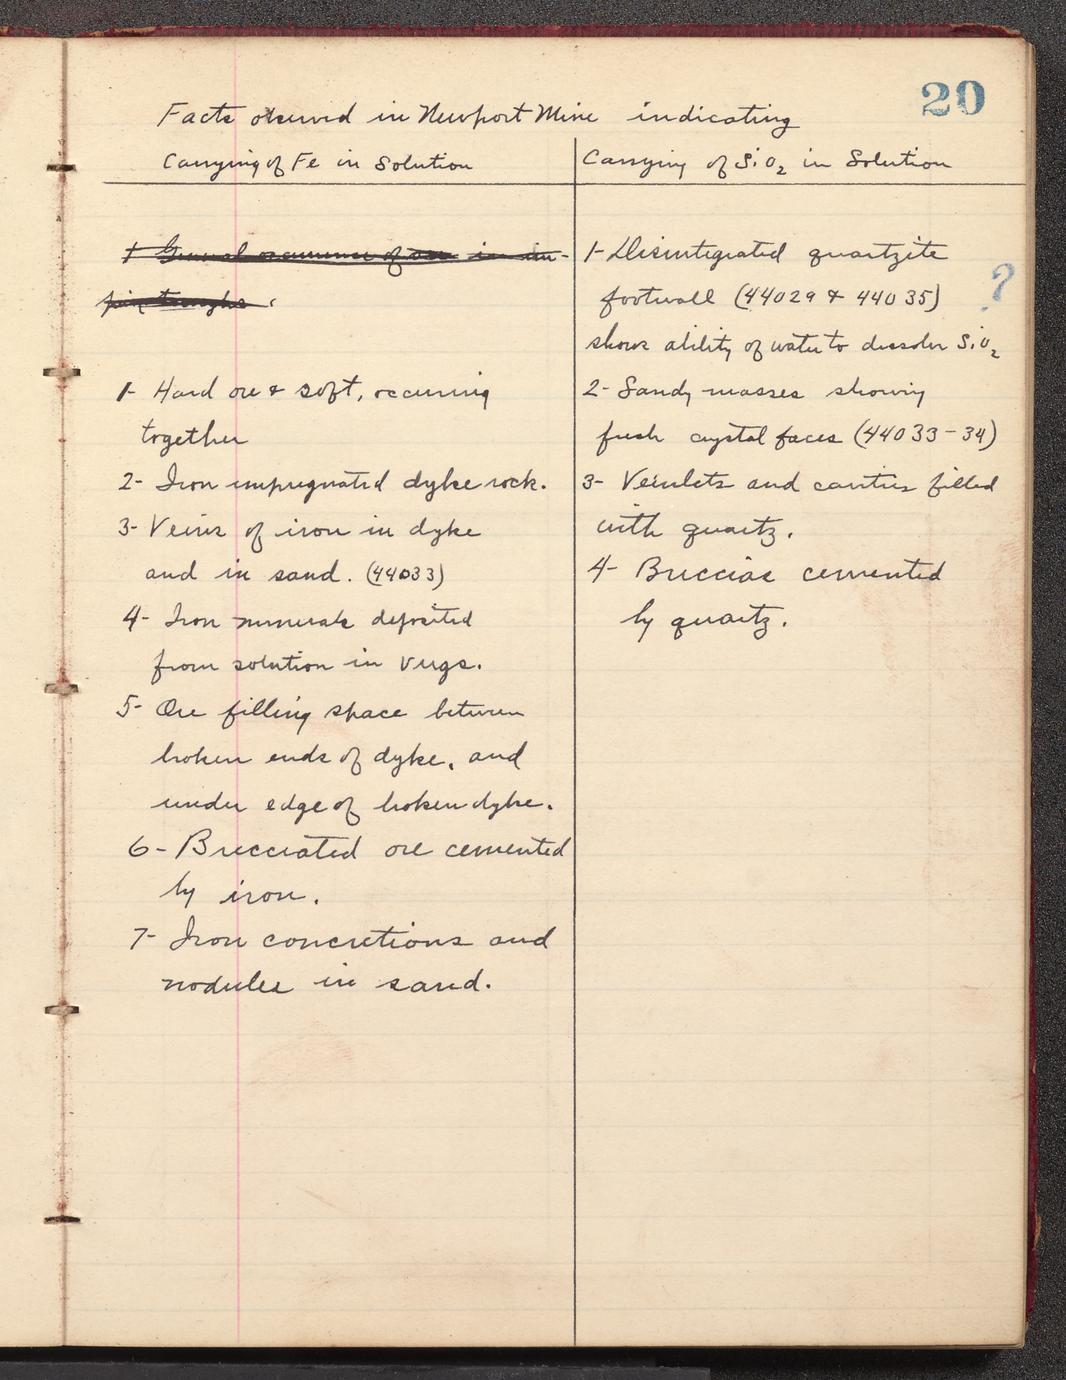 20
Facts observed in Newport Mine indicating
Carrying of Fe in Solution
1 General occurrence of ore in im-
pervious troughs.
1- Hard ore & soft, occurring
together
2- Iron impregnated dyke rock.
3- Veins of iron in dyke
and in sand. (44033)
4- Iron minerals deposited
from solution in vugs.
5- Ore filling space between
broken ends of dyke, and
under edge of broken dyke.
6- Brecciated ore cemented
by iron.
7- Iron concretions and
nodules in sand.
Carrying of SiO2 in Solution
1- Disintegrated quartzite
footwall (44029 & 44035) ?
shows ability of water to dissolve SiO2
2- Sandy masses showing
fresh crystal faces (44033-34)
3- Veinlets and cavities filled
with quartz.
4- Breccias cemented
by quartz.